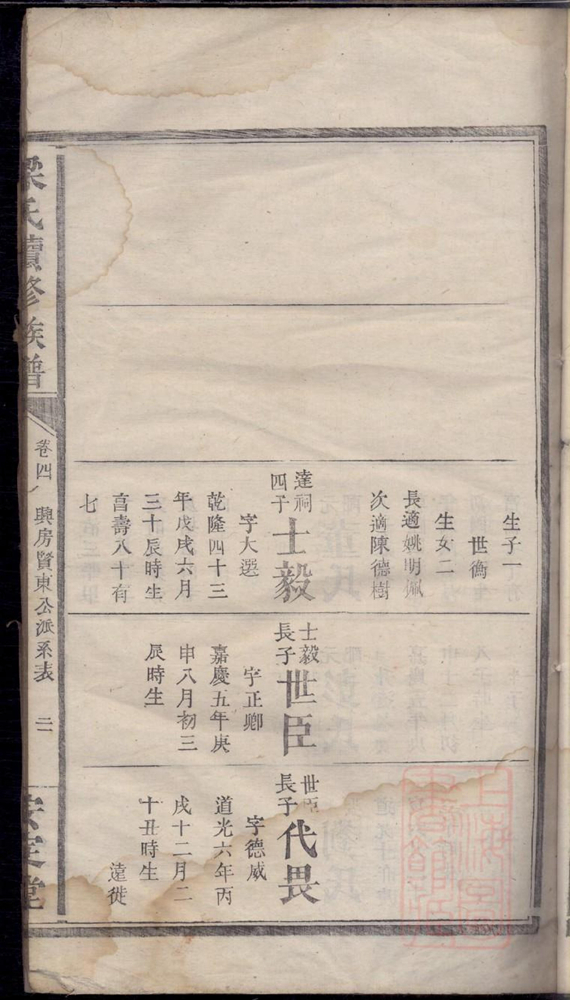 生子一
世衡
生女二
長適姚明佩
次適陳德樹
達祠
四子
士毅
字大選
乾隆四十三
年戊戌六月
三十辰時生
官壽八十有
七
士毅
長子
世臣
字正卿
嘉慶五年庚
申八月初三
辰時生
世臣
長子
代畏
字德威
道光六年丙
戌十二月二
十丑時生
遠徙
梁氏續修族譜
卷四
興房賢東公派系表
二
安定堂